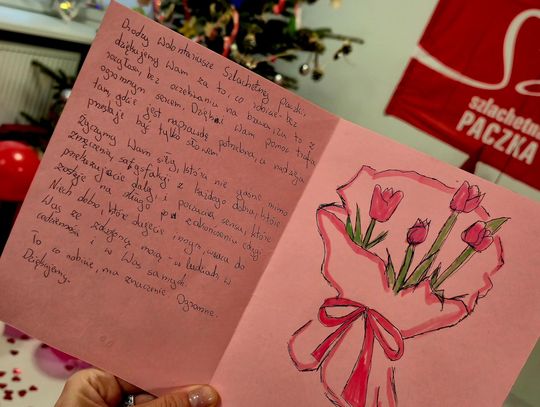 Drodzy Wolontariusze Szlachetnej Paczki,
dziękujemy Wam za to, co robicie bez
rozgłosu, bez oczekiwania na brawa, za to z
ogromnym sercem. Dzięki Wam pomoc trafia
tam, gdzie jest naprawdę potrzebna, a nadzieja
przestaje być tylko słowem.
Życzymy Wam siły, która nie gaśnie mimo
zmęczenia, satysfakcji z każdego dobra, które
przekazujecie dalej i poczucia sensu, które
zostaje na długo po zakończeniu edycji.
Niech dobro, które dajecie innym, wraca do
Was ze zdwojoną mocą - w ludziach, w
codzienności i w Was samych.
To co robicie, ma znaczenie. Ogromne.
Dziękujemy.
szlachetna
PACZKA